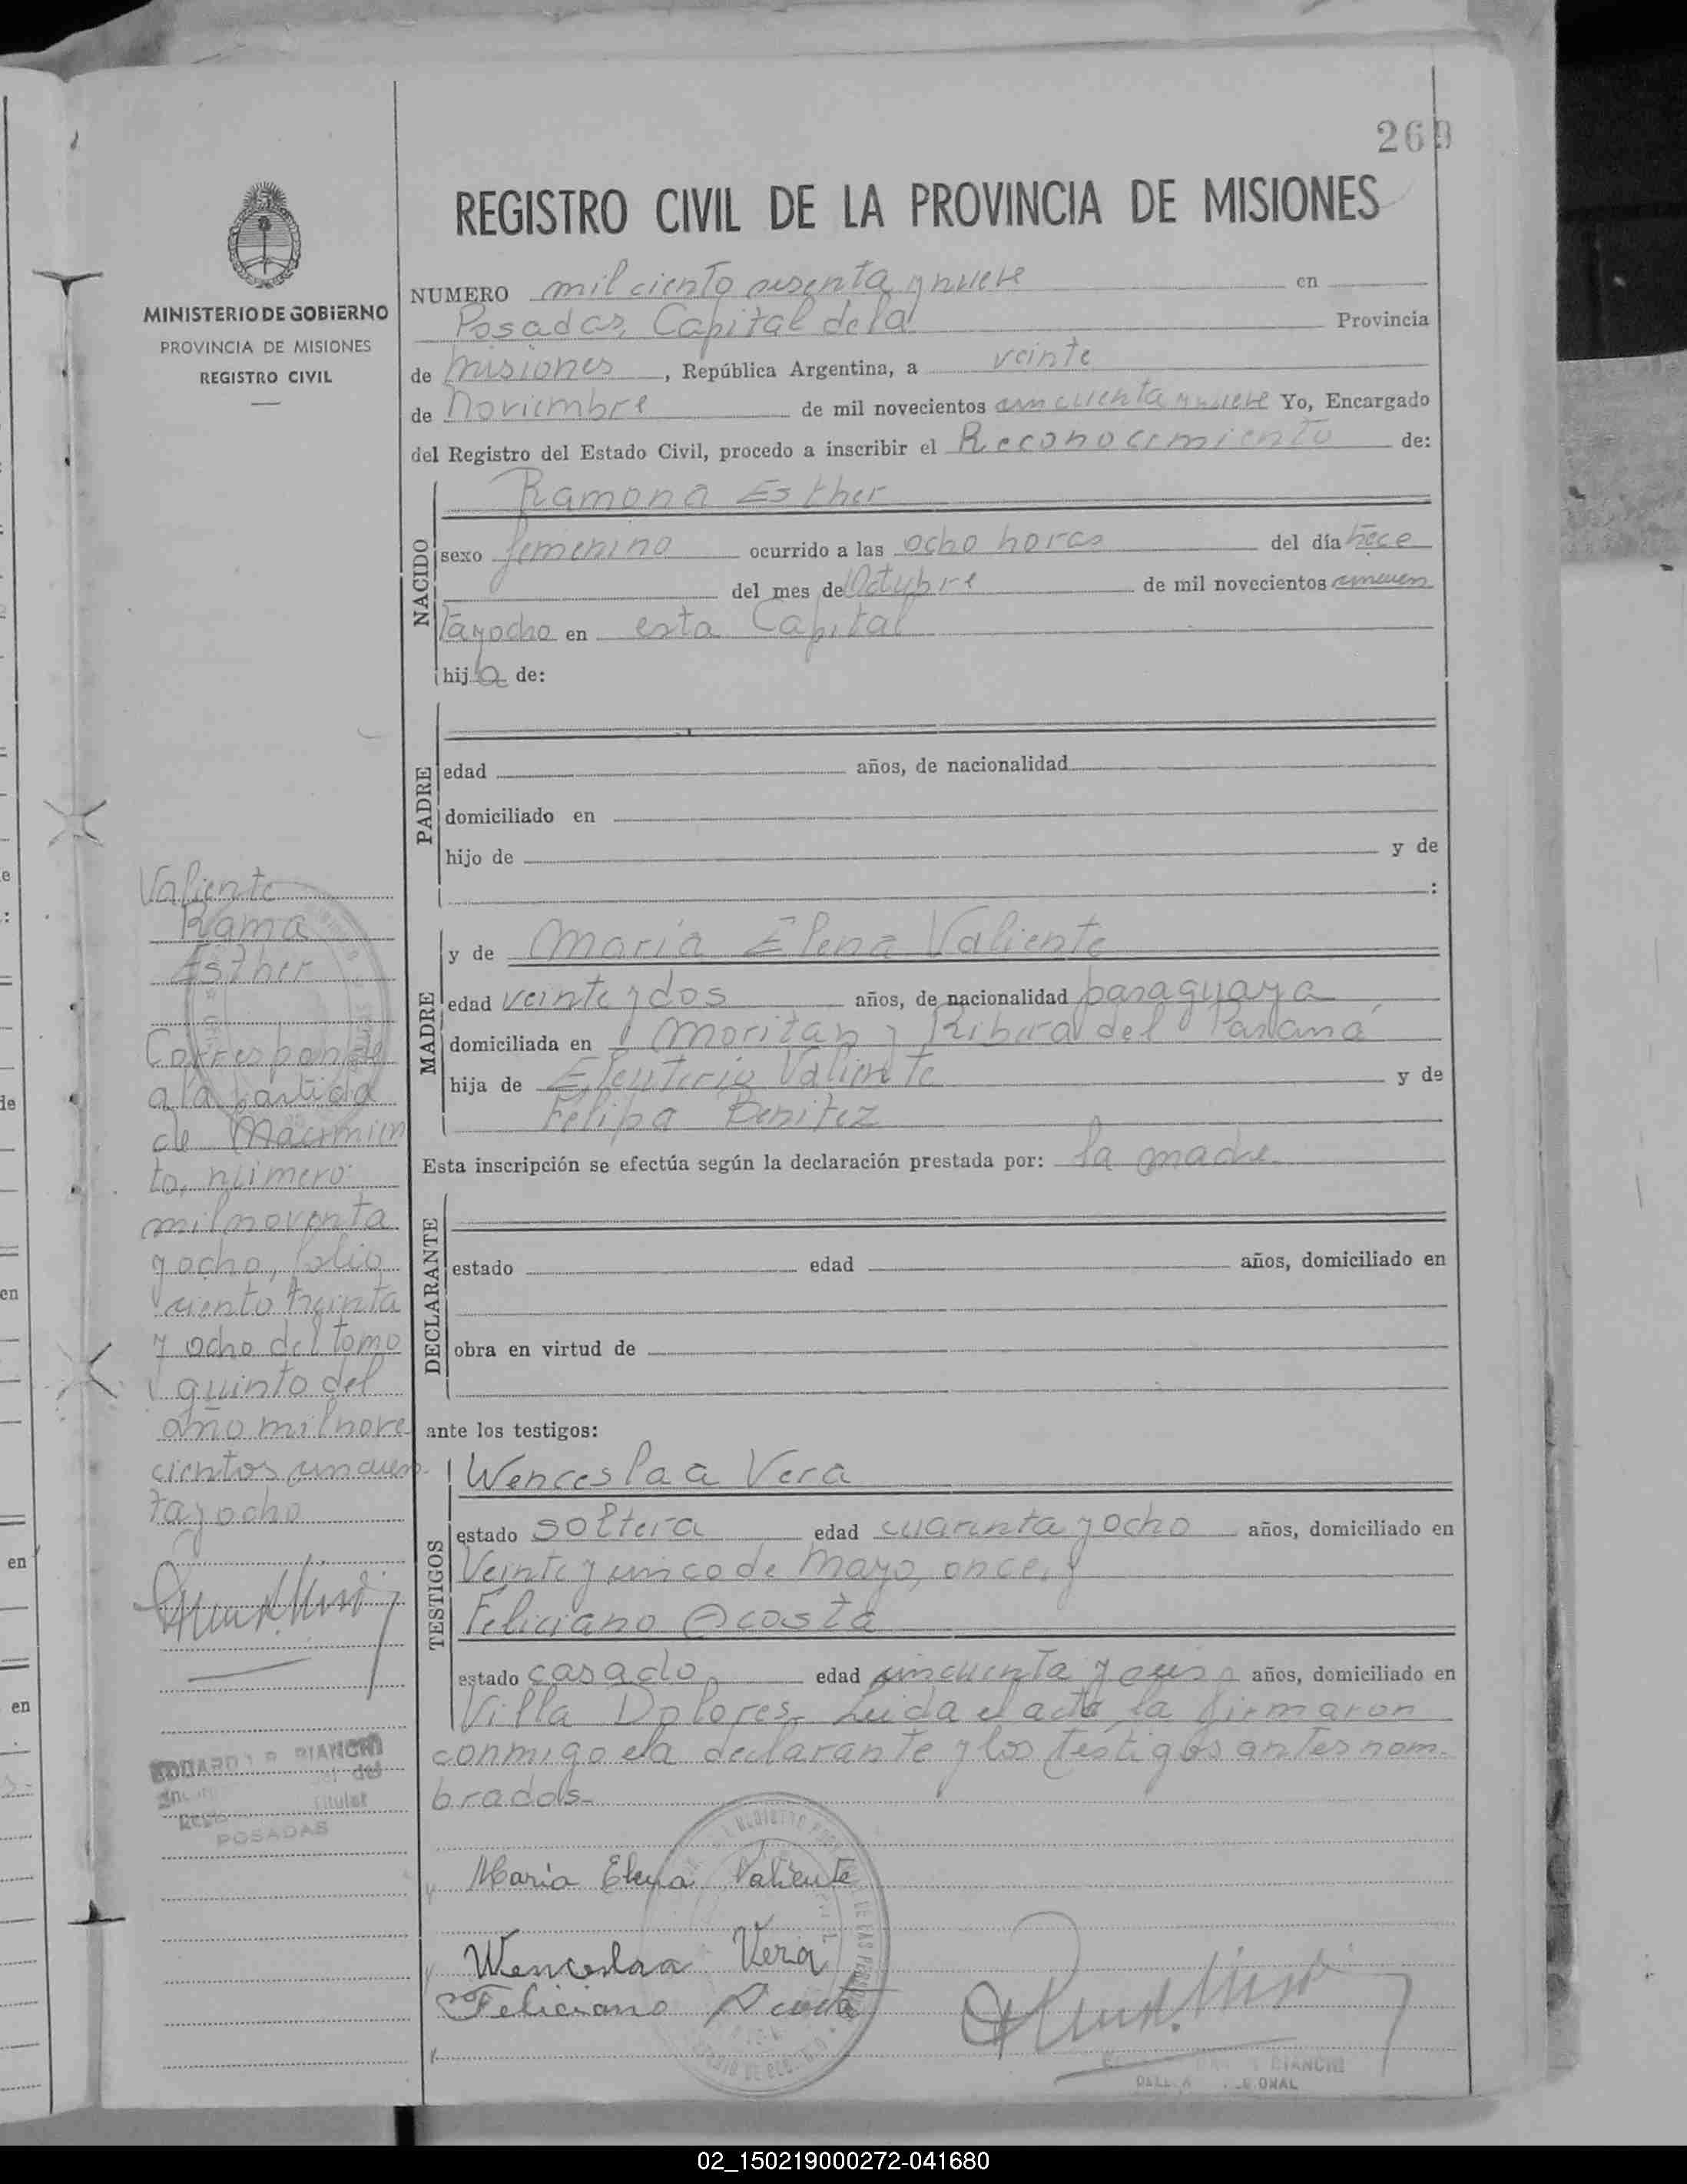 269
REGISTRO CIVIL DE LA PROVINCIA DE MISIONES
MINISTERIO DE GOBIERNO
PROVINCIA DE MISIONES
REGISTRO CIVIL
NUMERO mil ciento sesenta y nueve en
Posadas, Capital de la Provincia
de Misiones, República Argentina, a veinte
de Noviembre de mil novecientos cincuenta y nueve Yo, Encargado
del Registro del Estado Civil, procedo a inscribir el Reconocimiento de:
NACIDO
Ramona Esther
sexo femenino ocurrido a las ocho horas del día trece
del mes de Octubre de mil novecientos cincuen
ta y ocho en esta Capital
hija de:
PADRE
edad años, de nacionalidad
domiciliado en
hijo de y de
:
MADRE
y de Maria Elena Valiente
edad veinte y dos años, de nacionalidad paraguaya
domiciliada en Moritan y Ribera del Paraná
hija de Eleuterio Valiente y de
Felipa Benitez
Esta inscripción se efectúa según la declaración prestada por: la madre
DECLARANTE
estado edad años, domiciliado en
obra en virtud de
ante los testigos:
TESTIGOS
Wenceslaa Vera
estado soltera edad cuarenta y ocho años, domiciliado en
Veinte y cinco de Mayo, once, y
Feliciano Acosta
estado casado edad cincuenta y años, domiciliado en
Villa Dolores- Leida el acta la firmaron
conmigo la declarante y los testigos antes nom-
brados-
Maria Elena Valiente
Wenceslaa Vera
Feliciano Acosta
BIANCHI
Valiente
Rama
Esther
Corresponde
a la partida
de Nacimien
to, número
mil noventa
y ocho, folio
ciento treinta
y ocho del tomo
quinto del
año mil nove
cientos cincuen
ta y ocho
BIANCHI
Titular
POSADAS
02_150219000272-041680